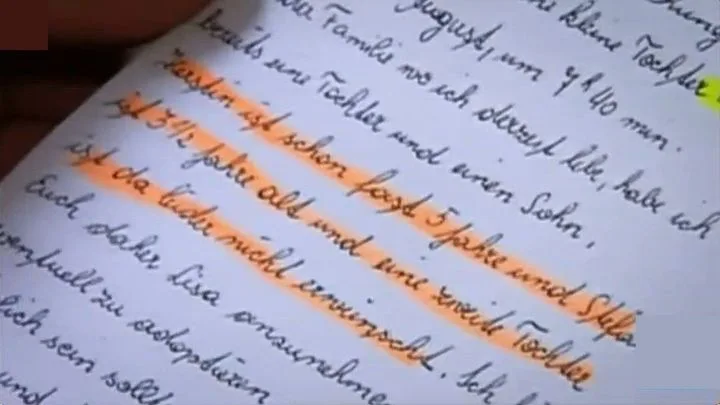 kleine Tochter
August, um 7h40 min.
Familie wo ich derzeit lebe, habe ich
bereits eine Tochter und einen Sohn,
Kerstin ist schon fast 5 Jahre und Stefan
ist 3 1/2 Jahre alt und eine zweite Tochter
ist da leider nicht erwünscht. Ich
Euch daher Lisa anzunehmen
eventuell zu adoptieren
lich sein sollt
und